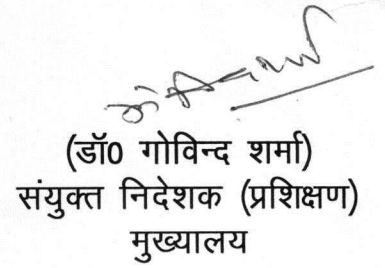 (डॉ0 गोविन्द शर्मा)
संयुक्त निदेशक (प्रशिक्षण)
मुख्यालय